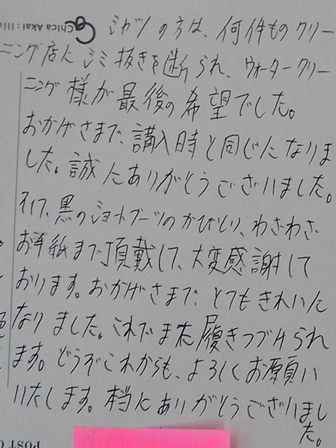 Chica Akai : Illu
シャツの方は、何件ものクリー
ニング店にシミ抜きを断られ、ウォータークリー
ニング様が最後の希望でした。
おかげさまで、購入時と同じになりま
した。誠にありがとうございました。
そして、黒のショートブーツのかびとり、わざわざ
お手紙まで頂戴して、大変感謝して
おります。おかげさまで、とてもきれいに
なりました。これでまた履きつづけられ
ます。どうぞこれからも、よろしくお願い
いたします。本当にありがとうございまし
た。
POST C